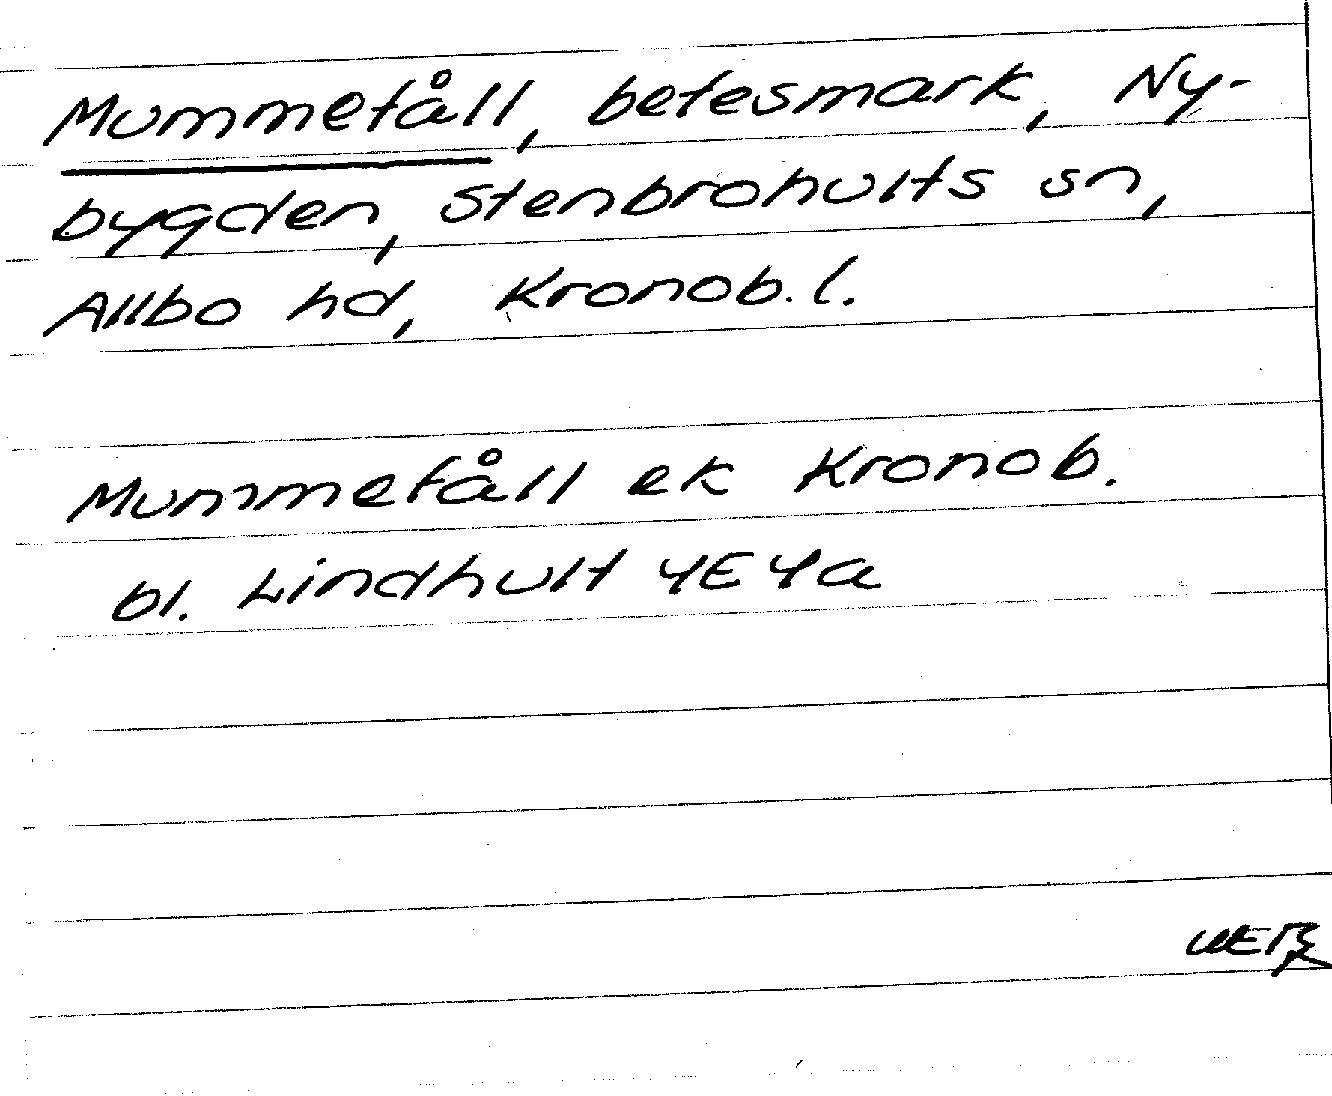 Mummefåll, betesmark, Ny-
bygden, Stenbrohults sn,
Allbo hd, Kronob. l.
Mummefåll ek Kronob.
bl. Lindhult 4E4a